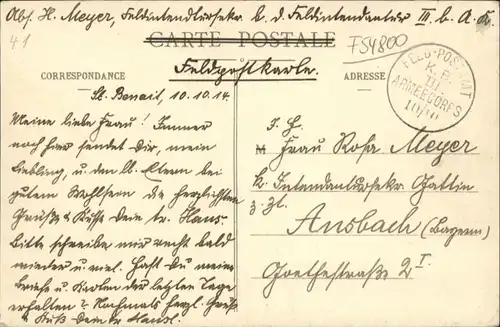 Abs. H. Meyer, Feldintendtursekr. b. d. Feldintendantur III. b. A. K.
41
CARTE POSTALE
F54800
Feldpostkarte.
CORRESPONDANCE
ADRESSE
FELD-POSTAMT
K. B.
III.
ARMEECORPS
10/10
St. Benoit, 10.10.14.
Meine liebe Frau! Immer
noch hier sendet Dir, mein
Liebling, u. den lb. Eltern bei
gutem Wohlsein die herzlichsten
Grüße & Küsse Dein tr. Hans.
Bitte schreibe mir recht bald
wieder u. viel. Hast Du meine
Briefe u. Karten der letzten Tage
erhalten? Nochmals herzl. Gruß
u. Kuß Dein tr. Hansl.
I. H.
M Frau Rosa Meyer
k. Intendantursekr. Gattin
z. Zt.
Ansbach (Bayern)
Goethestraße 2 I.